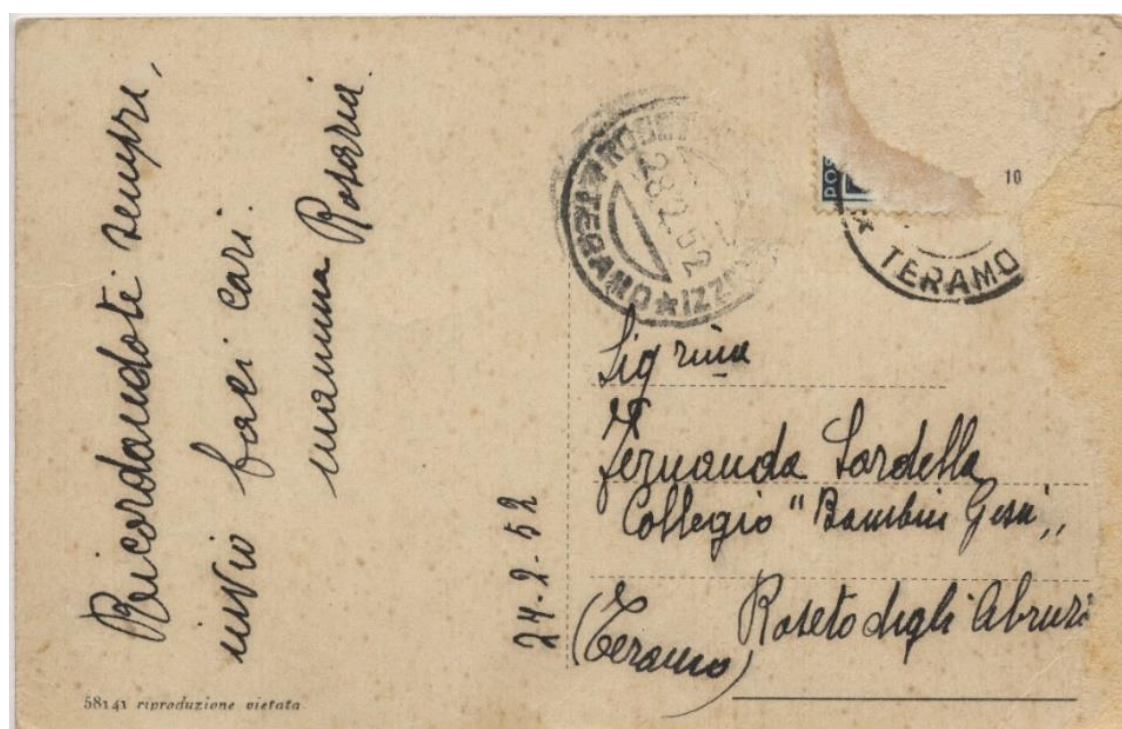 Ricordandoti sempre,
invio baci cari.
mamma Rosaria.
24-2-52
58141 riproduzione vietata.
TERAMO
28.2.52
POS
10
TERAMO
Sig rina
Fernanda Sardella
Collegio "Bambin Gesù,,
Roseto degli Abruzi
(Teramo)